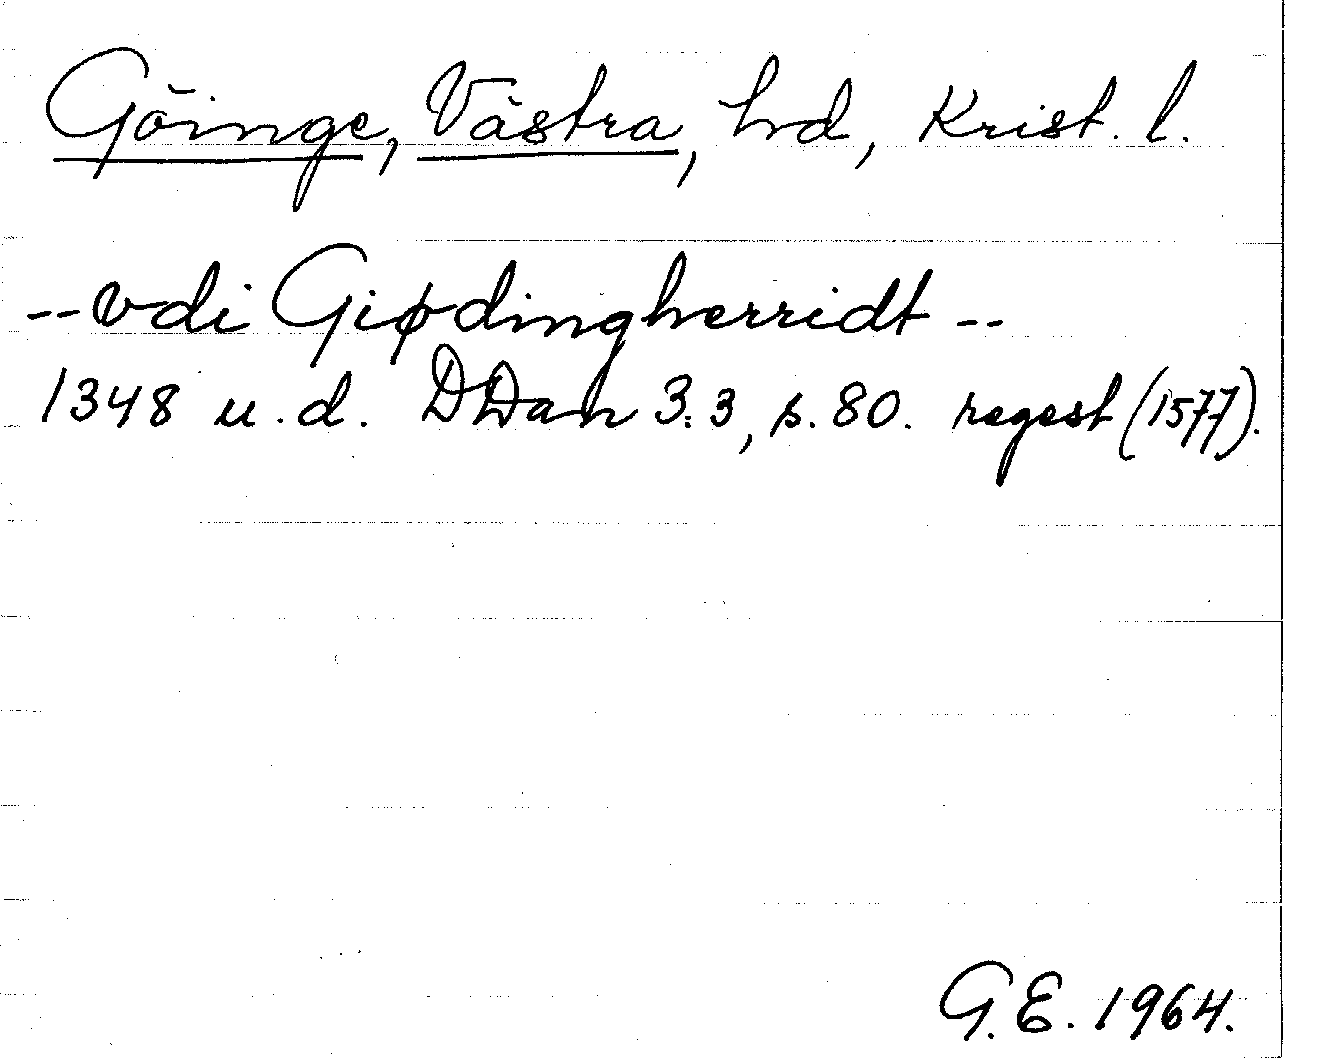 Göinge, Västra, hrd, Krist. l.
-- vdi Giødingherridt --
1348 u.d. DDan 3:3, s. 80. regest (1577).
G.E. 1964.